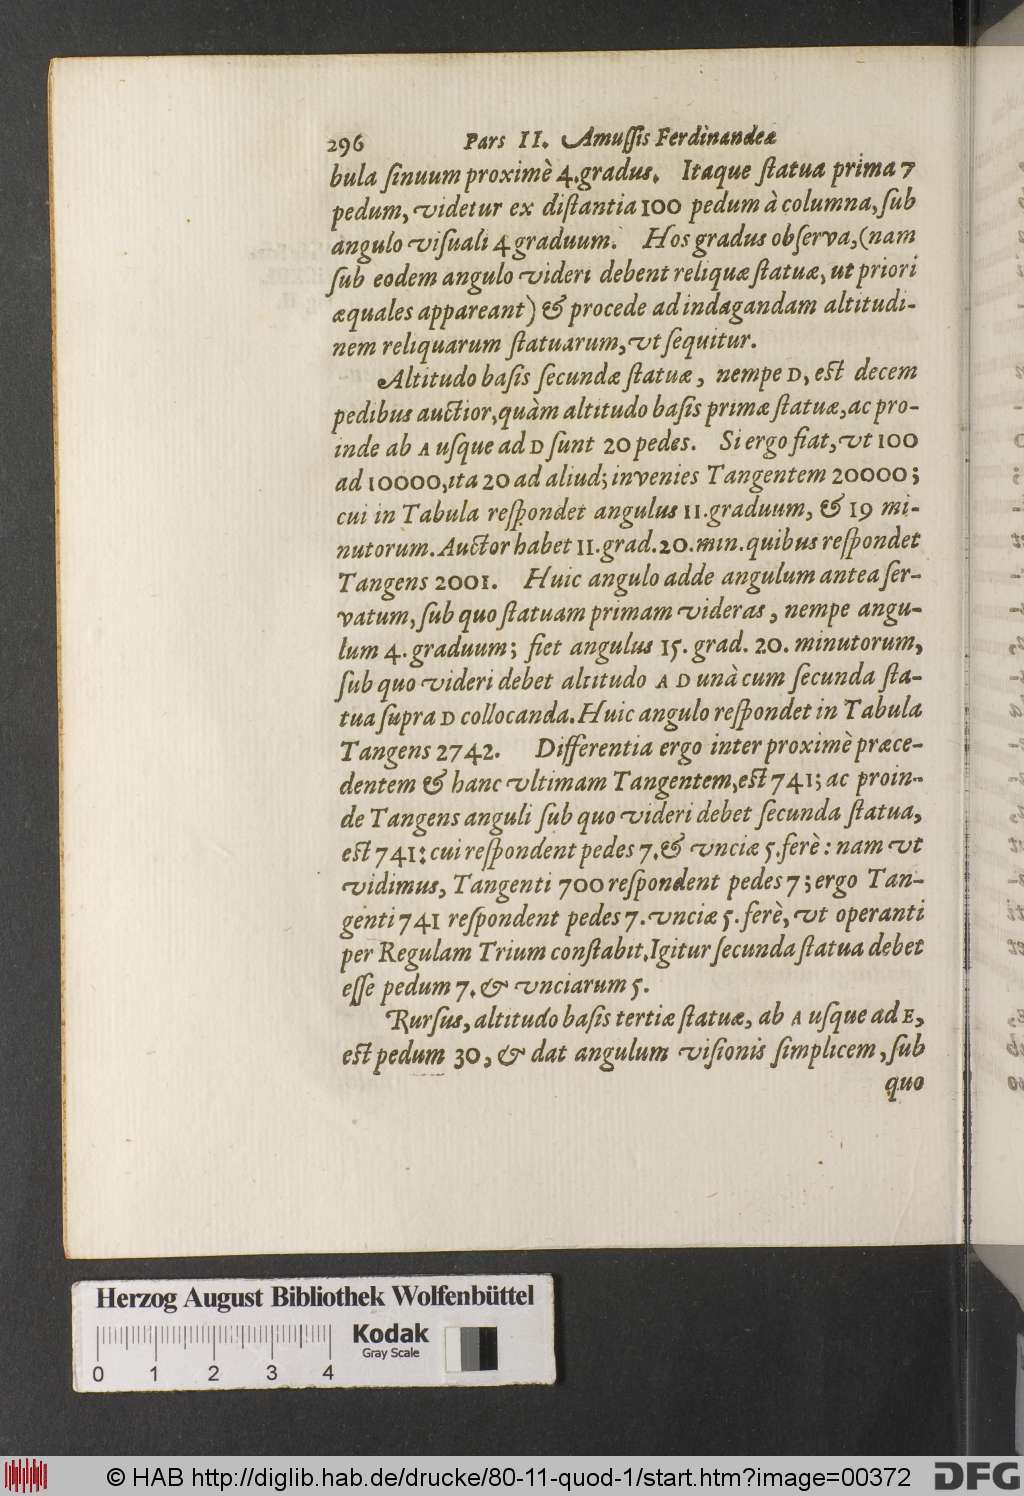 296 Pars II. Amuſſis Ferdinandeæ
bula ſinuum proximè 4.gradus. Itaque ſtatua prima 7
pedum, videtur ex diſtantia 100 pedum à columna, ſub
angulo viſuali 4 graduum. Hos gradus obſerva, (nam
ſub eodem angulo videri debent reliquæ ſtatuæ, ut priori
æquales appareant) & procede ad indagandam altitudi-
nem reliquarum ſtatuarum, vt ſequitur.
Altitudo baſis ſecundæ ſtatuæ, nempe D, eſt decem
pedibus auctior, quàm altitudo baſis primæ ſtatuæ, ac pro-
inde ab A uſque ad D ſunt 20 pedes. Si ergo fiat, vt 100
ad 10000, ita 20 ad aliud; invenies Tangentem 20000;
cui in Tabula reſpondet angulus 11.graduum, & 19 mi-
nutorum. Auctor habet 11.grad.20.min.quibus reſpondet
Tangens 2001. Huic angulo adde angulum antea ſer-
vatum, ſub quo ſtatuam primam videras, nempe angu-
lum 4. graduum; fiet angulus 15. grad. 20. minutorum,
ſub quo videri debet altitudo A D unà cum ſecunda ſta-
tua ſupra D collocanda. Huic angulo reſpondet in Tabula
Tangens 2742. Differentia ergo inter proximè præce-
dentem & hanc vltimam Tangentem, eſt 741; ac proin-
de Tangens anguli ſub quo videri debet ſecunda ſtatua,
eſt 741: cui reſpondent pedes 7. & vnciæ 5. ferè: nam vt
vidimus, Tangenti 700 reſpondent pedes 7; ergo Tan-
genti 741 reſpondent pedes 7. vnciæ 5. ferè, vt operanti
per Regulam Trium conſtabit. Igitur ſecunda ſtatua debet
eſſe pedum 7. & vnciarum 5.
Rurſus, altitudo baſis tertiæ ſtatuæ, ab A uſque ad E,
eſt pedum 30, & dat angulum viſionis ſimplicem, ſub
quo
Herzog August Bibliothek Wolfenbüttel
Kodak
Gray Scale
0 1 2 3 4
© HAB http://diglib.hab.de/drucke/80-11-quod-1/start.htm?image=00372
DFG